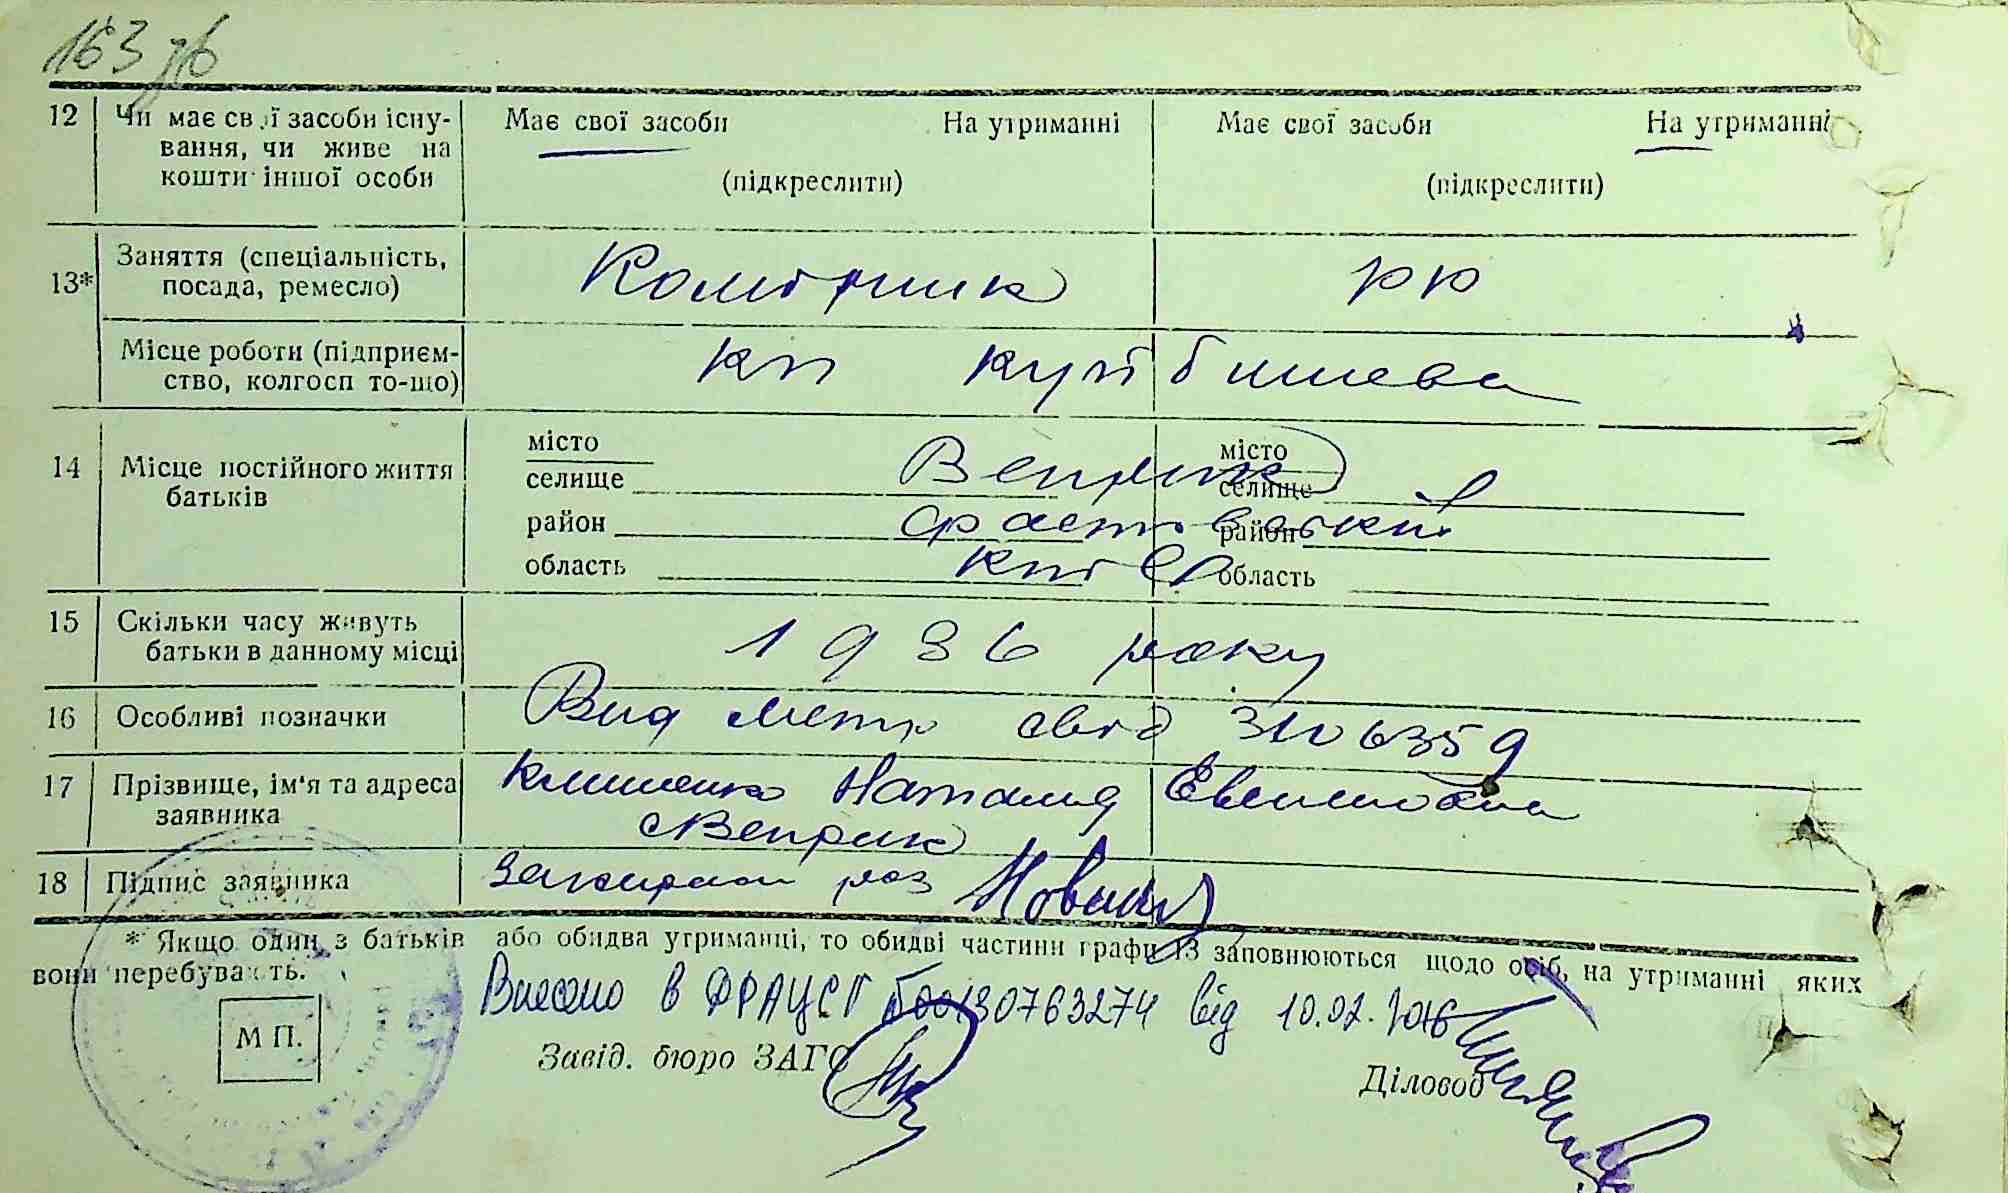 163 зв
12 Чи має свої засоби існу- Має свої засоби На утриманні Має свої засоби На утриманні
вання, чи живе на
кошти іншої особи (підкреслити) (підкреслити)
Заняття (спеціальність, Комірник рк
13* посада, ремесло)
Місце роботи (підприєм- кп Куйбишева
ство, колгосп то-що)
місто місто
14 Місце постійного життя селище Веприк селище
батьків
район Фастівський район
область Київ область
15 Скільки часу живуть 1936 року
батьки в данному місці
16 Особливі позначки Вид метр свід 3106359
17 Прізвище, ім'я та адреса Клименко Наталия
заявника с Веприк
18 Підпис заявника
* Якщо один з батьків або обидва утриманці, то обидві частини графи 13 заповнюються щодо осіб, на утриманні яких
вони перебувають.
Внесено в ДРАЦСГ 00130763274 від 10.02.2016
М П.
Завід. бюро ЗАГС
Діловод